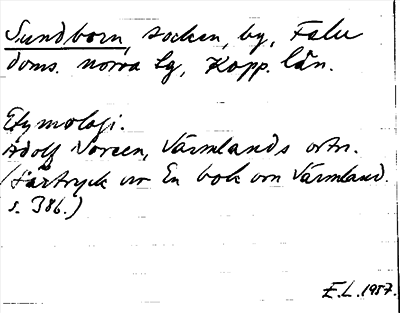 Sundborn, socken, by, Falu
doms. norra lg, Kopp. län.
Etymologi.
Adolf Noreen, Värmlands ortn.
(Särtryck ur En bok om Värmland.
s. 386.)
E.L. 1957.